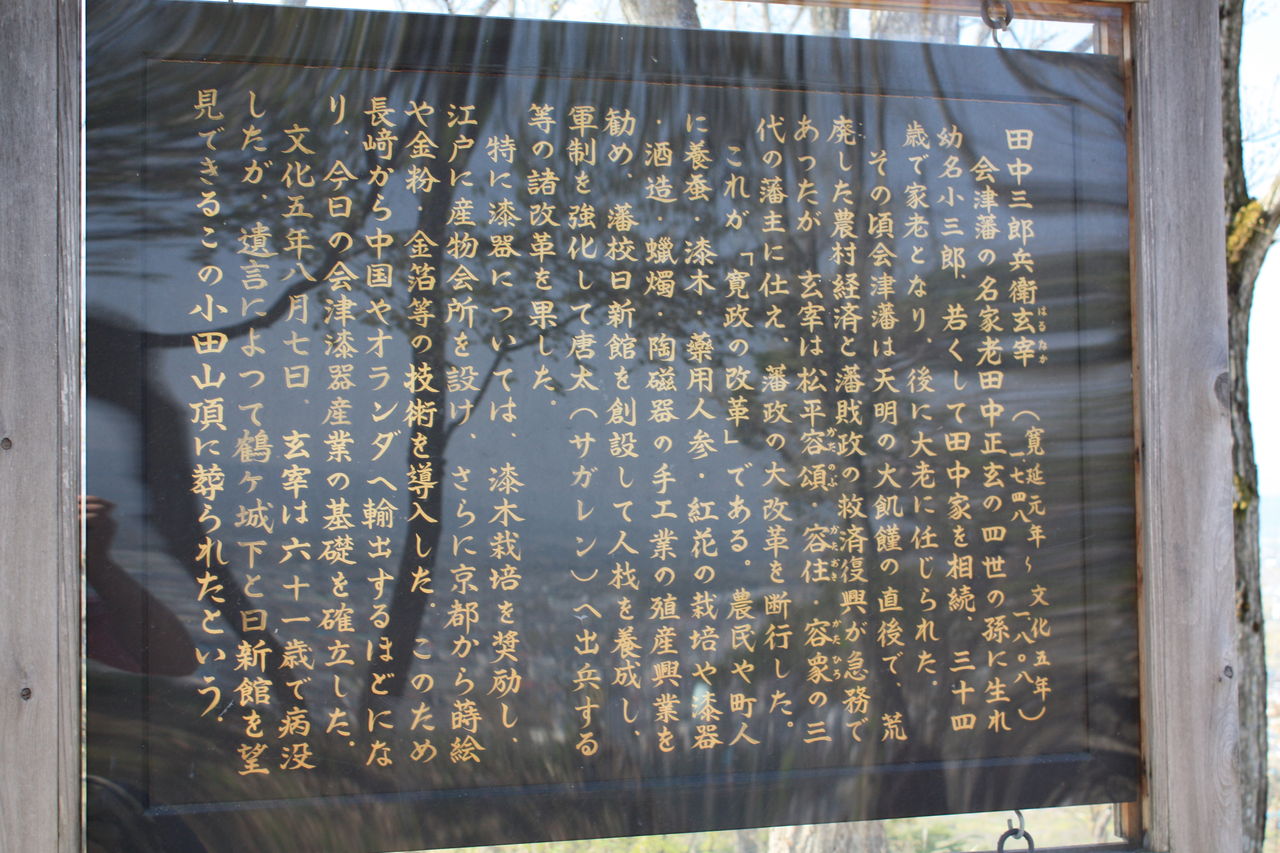 田中三郎兵衛玄宰（寛延元年～文化五年）
はるなか
一七四八　一八〇八
会津藩の名家老田中正玄の四世の孫に生れ
幼名小三郎、若くして田中家を相続、三十四
歳で家老となり、後に大老に任じられた。
その頃会津藩は天明の大飢饉の直後で、荒
廃した農村経済と藩財政の救済復興が急務で
あったが　玄宰は松平容頌・容住・容衆の三
かたのぶ　かたおき　かたひろ
代の藩主に仕え、藩政の大改革を断行した。
これが「寛政の改革」である。農民や町人
に養蚕・漆木・薬用人参・紅花の栽培や漆器
・酒造・蠟燭・陶磁器の手工業の殖産興業を
勧め、藩校日新館を創設して人材を養成し、
軍制を強化して唐太（サガレン）へ出兵する
等の諸改革を果した。
特に漆器については、漆木栽培を奨励し、
江戸に産物会所を設け、さらに京都から蒔絵
や金粉　金箔等の技術を導入した。このため
長崎から中国やオランダへ輸出するほどにな
り、今日の会津漆器産業の基礎を確立した。
文化五年八月七日、玄宰は六十一歳で病没
したが、遺言によつて鶴ヶ城下と日新館を望
見できるこの小田山頂に葬られたという。